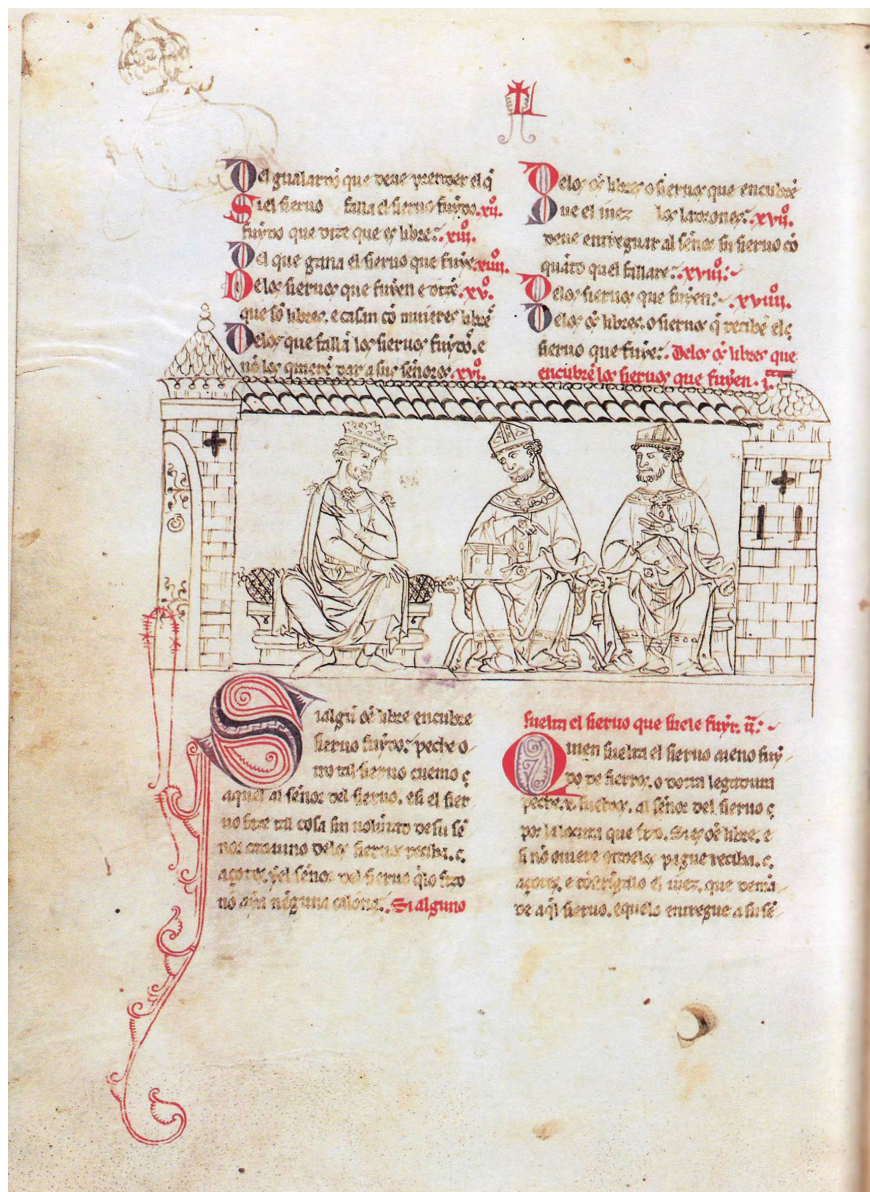 L
Del gualardō que deve prender el q̄
Si el siervo falla el siervo fuydo. xii.
fuydo que dize que es libre. xiii.
Del que gana el siervo que fuye. xiiii.
Delos siervos que fuyen e dizē. xv.
que sō libres. e casan cō mugieres librē
Delos que fallā los siervos fuydos. e
nō los quierē dar a sus señores. xvi.
Delos oēs libres o siervos que encubrē
Que el iuez los ladrones. xvii.
deve entreguar al señor su siervo cō
quāto quel fallare. xviii.
Delos siervos que fuyen. xviiii.
Delos oēs libres. o siervos q̄ recibē el
siervo que fuye. Delos oēs libres que
encubrē los siervos que fuyen. i.
Si algū oē libre encubre
siervo fuydo. peche o-
tro tal siervo cuemo
aquel al señor del siervo. e si el sier
vo fizo tal cosa sin volūtad de su se
ñor cada uno delos siervos reciba. c.
açotes. y el señor del siervo q̄lo fizo
nō aya nēguna calona. Si alguno
suelta el siervo que suele fuyr. ii.
Quien suelta el siervo aieno fuy
do de fierros. o dotra legadura
peche. x. sueldos. al señor del siervo
por la locura que fizo. Si es oē libre. e
si nō oviere ond elos pague reciba. c.
açotes. e cōstrīgalo el iuez. que demā-
de aq̄l siervo. e quelo entregue a su se